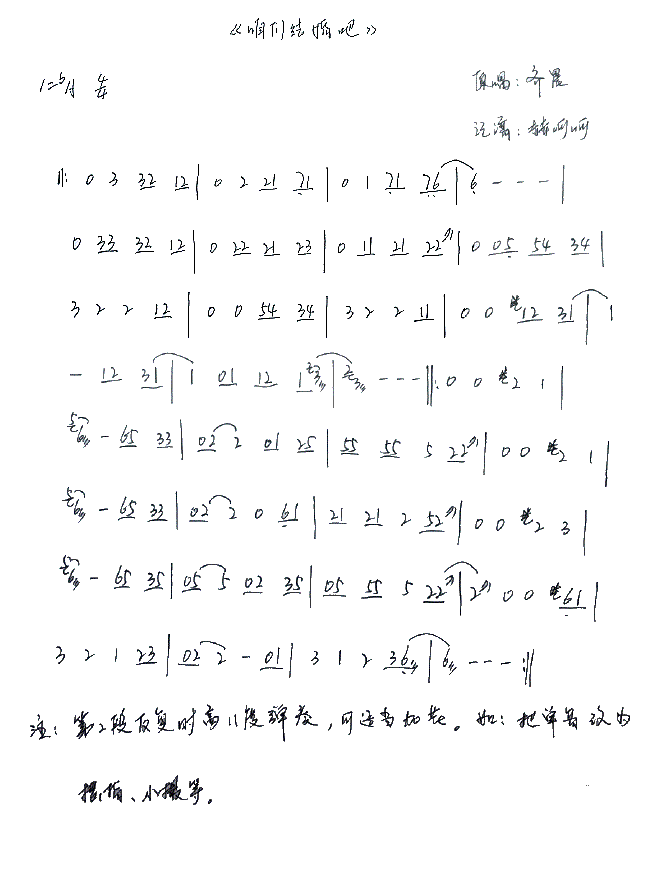 《咱们结婚吧》
1=♭A 4/4
原唱：齐晨
记谱：赫赫呵呵
‖: 0 3 32 12 | 0 2 21 71 | 0 1 71 76 | 6 - - - |
0 33 32 12 | 0 22 21 23 | 0 11 21 22 | 0 05 54 34 |
3 2 2 12 | 0 0 54 34 | 3 2 2 11 | 0 0 12 31 | 1
- 12 31 | 1 01 12 1 3 | 3 - - - ‖: 0 0 2 1 |
6 - 65 33 | 02 2 01 25 | 55 55 5 22 | 0 0 2 1 |
6 - 65 33 | 02 2 0 61 | 21 21 2 52 | 0 0 2 3 |
6 - 65 35 | 05 5 02 35 | 05 55 5 22 | 2 0 0 61 |
3 2 1 23 | 02 2 - 01 | 3 1 2 36 | 6 - - - :‖
注：第2段反复时高八度弹奏，可适当加花。如：把单音改为
摇指、小撮等。